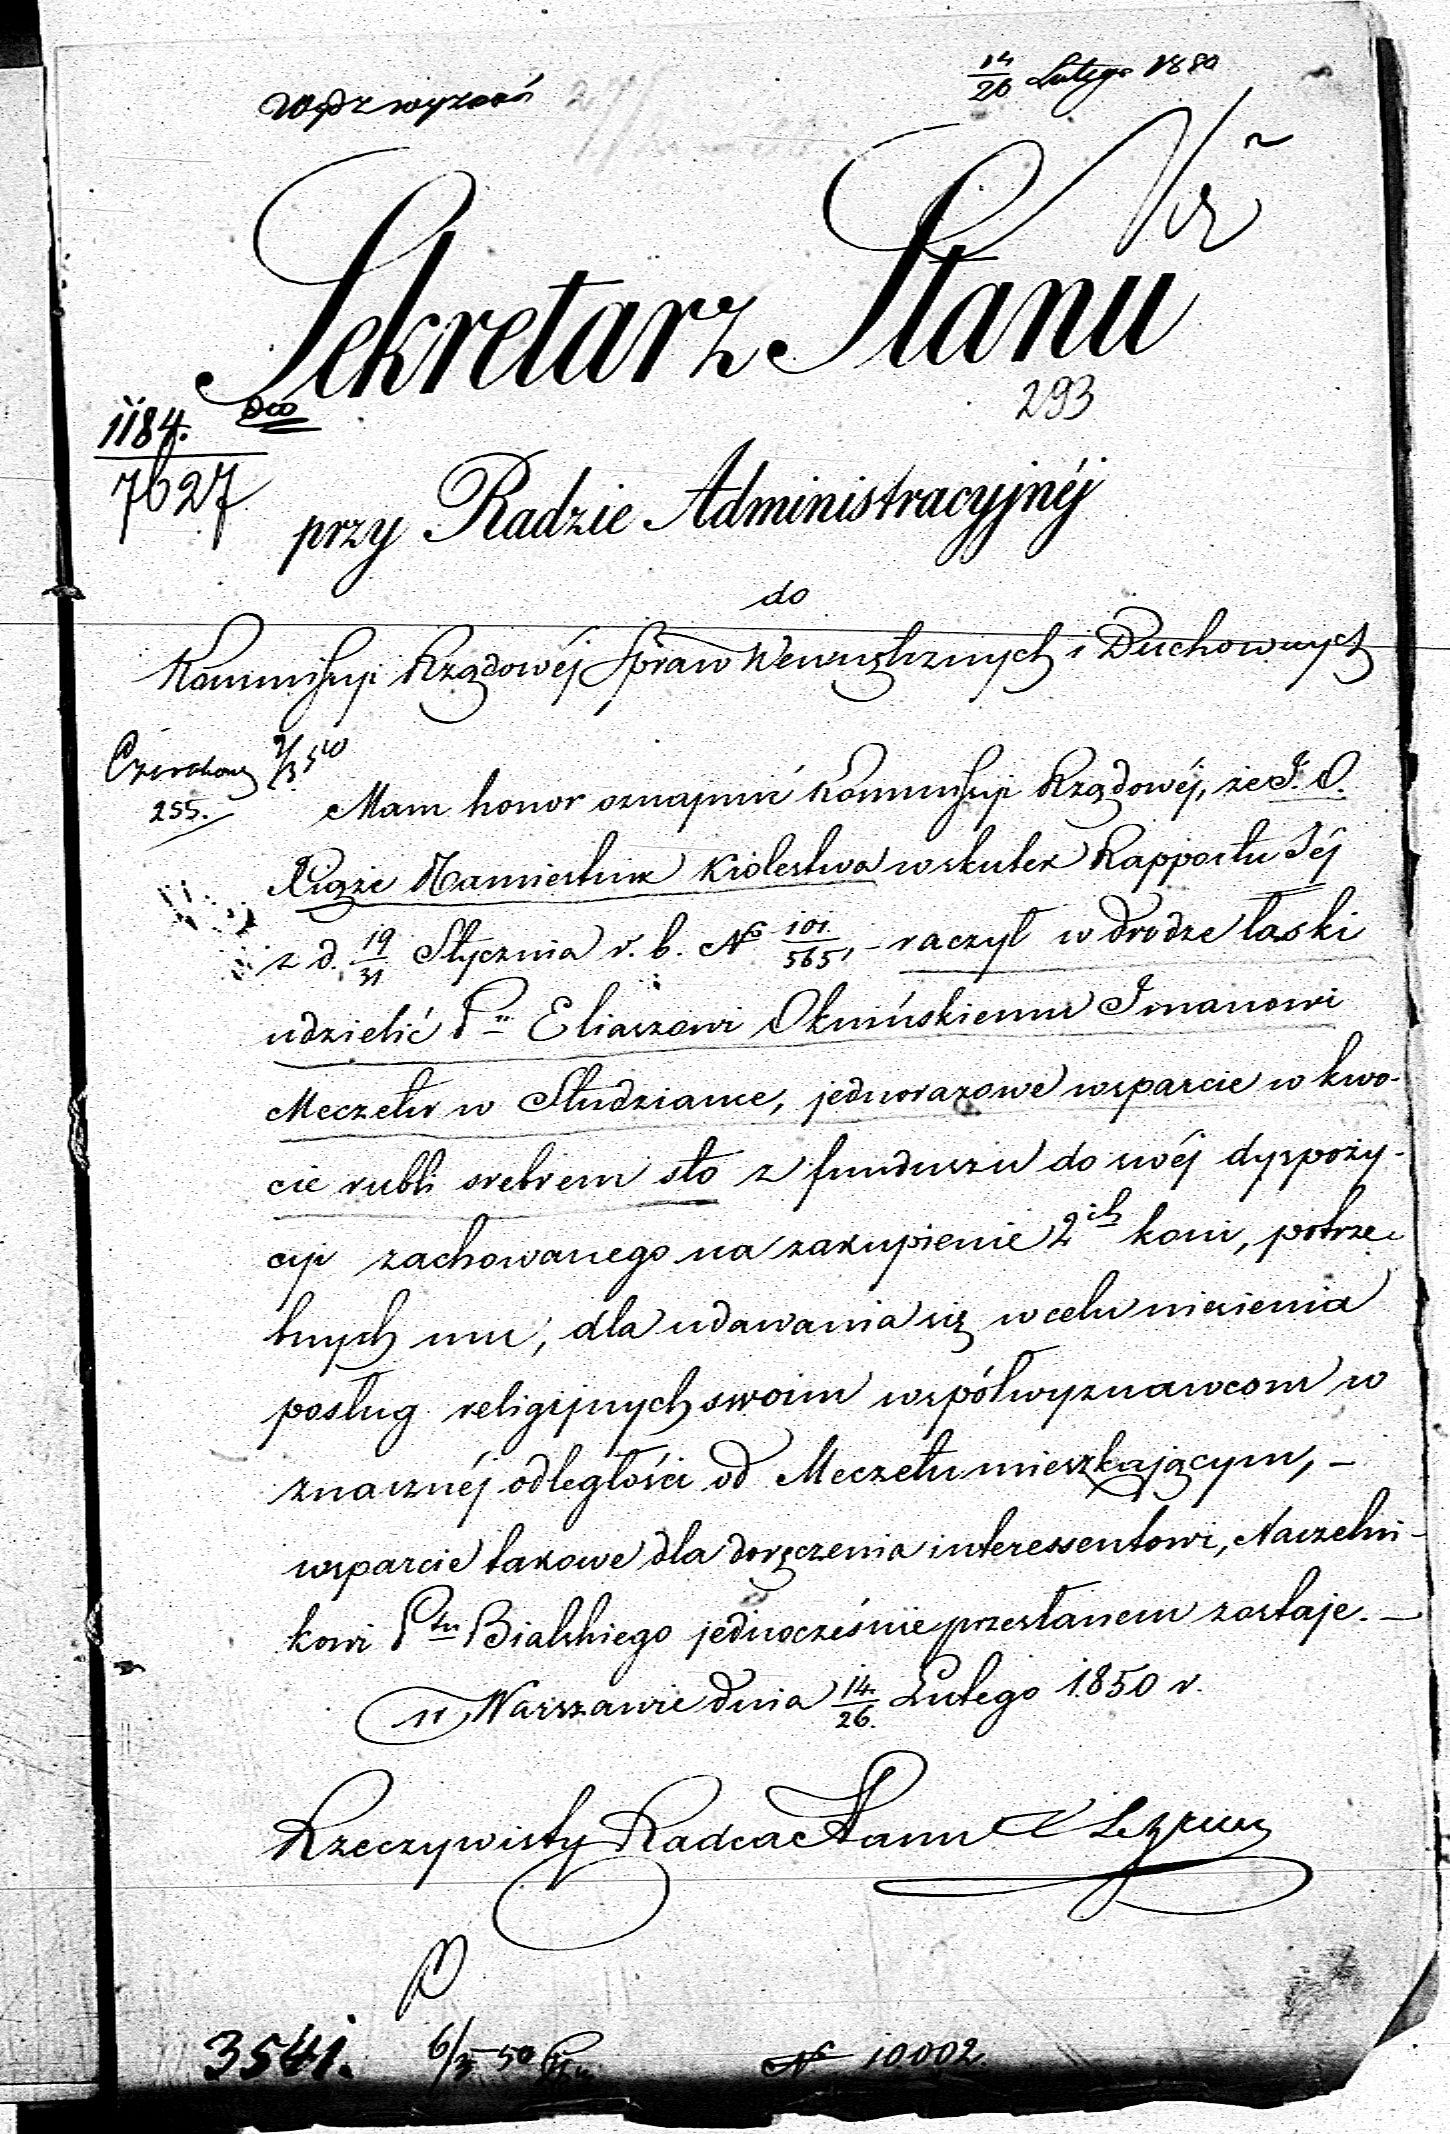 14/26 Lutego 1850
Sekretarz Stanu
293
1184.
7627
przy Radzie Administracyjnéj
do
Kommissyi Rządowéj Spraw Wewnętrznych i Duchownych
255.
Mam honor oznajmić Kommissyi Rządowéj, że J. O.
Xiąże Namiestnik Królestwa wskutek Rapportu Jéj
z d. 19/31 Stycznia r. b. No 101/565, - raczył w drodze łaski
udzielić Pnu Eliaszowi Okmińskiemu Imanowi
Meczetu w Studziance, jednorazowe wsparcie w kwo-
cie rubli srebrem sto z funduszu do swéj dyspozy-
cyi zachowanego na zakupienie 2ch koni, potrze-
bnych mu, dla udawania się w celu niesienia
posług religijnych swoim współwyznawcom w
znacznéj odległości od Meczetu mieszkającym, -
wsparcie takowe dla doręczenia interessentowi, Naczelni-
kowi Ptu Bialskiego jednocześnie przesłanem zostaje. -
w Warszawie dnia 14/26 Lutego 1850 r.
Rzeczywisty Radca Stanu
3541.
6/3 50
No 10002.